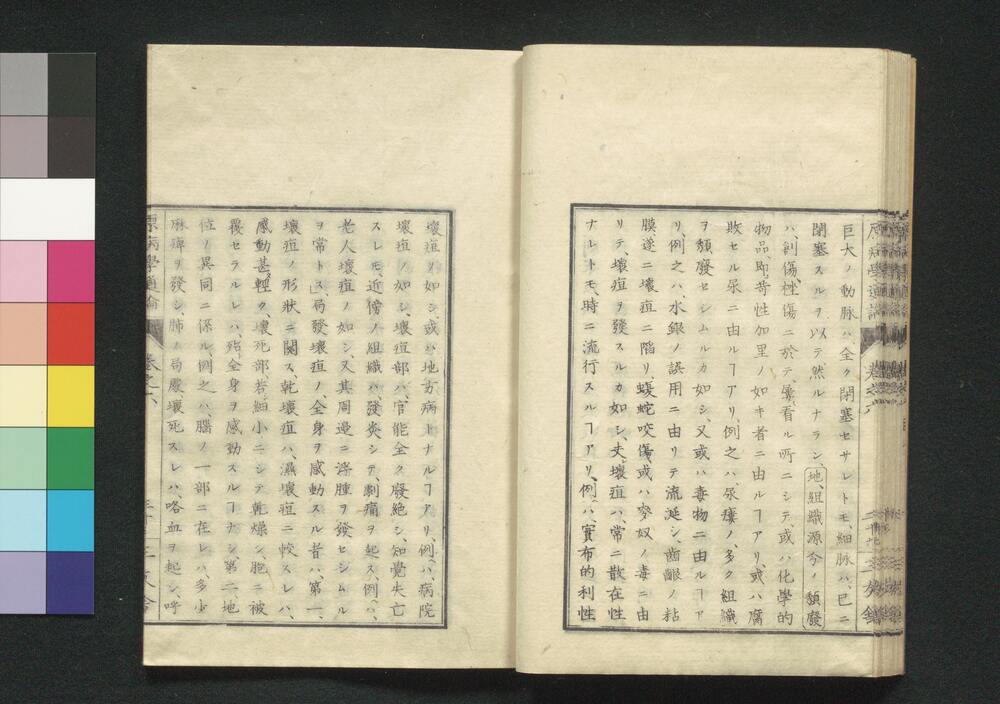 巨大ノ動脉ハ全ク閉塞セサレトモ、細脉ハ、已ニ
閉塞スルヲ以テ然ルナラン、地、組織源分ノ頽廢
ハ、創傷、挫傷ニ於テ、屢看ル所ニシテ、或ハ化學的
物品、即苛性加里ノ如キ者ニ由ルヿアリ、或ハ腐
敗セル尿ニ由ルヿアリ、例之ハ、尿瘻ノ、多ク組織
ヲ頽廢セシムルカ如シ、又或ハ毒物ニ由ルヿア
リ、例之ハ、水銀ノ誤用ニ由リテ流涎シ、齒齦ノ粘
膜遂ニ壊疽ニ陥リ、蝮蛇咬傷、或ハ麥奴ノ毒ニ由
リテ、壊疽ヲ發スルカ如シ、夫壊疽ハ、常ニ散在性
ナレトモ、時ニ流行スルヿアリ、例ハ、實布的利性
壊疽ノ如シ、或ハ地方病トナルヿアリ、例ハ、病院
壊疽ノ如シ、壊疽部ハ、官能全ク廢絶シ、知覺失亡
スレモ、近傍ノ組織ハ、發炎シテ、劇痛ヲ起ス、例ハ、
老人壊疽ノ如シ、又其周邊ニ浮腫ヲ發セシムル
ヲ常トス、局發壊疽ノ、全身ヲ感動スル者ハ、第一、
壊疽ノ形狀ニ関ス、乾壊疽ハ、濕壊疽ニ較スレハ、
感動甚輕ク、壊死部若細小ニシテ乾燥シ、胞ニ被
覆セラルレハ、殆全身ヲ感動スルヿナシ、第二、地
位ノ異同ニ係ル、例之ハ、腦ノ一部ニ在レハ、多少
麻痺ヲ發シ、肺ノ局處壊死スレハ、咯血ヲ起シ、呼
原病學通論 卷之六